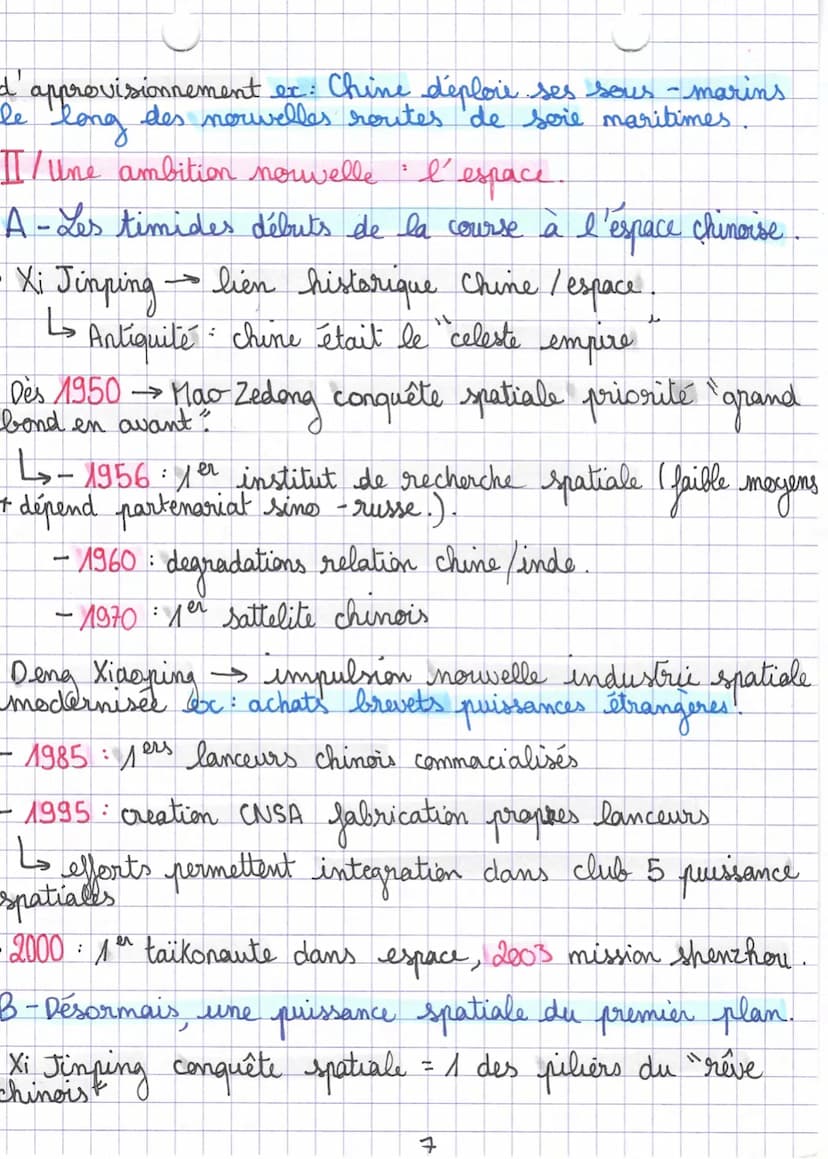 d'approvisionnement ex : Chine déploie ses sous-marins
le long des nouvelles routes de soie maritimes.
II/Une ambition nouvelle : l'espace.
A-Les timides débuts de la course à l'éspace chinoise.
Xi Jinping → lien historique Chine/espace.
↳ Antiquité : chine était le "celeste empire"
Dès 1950 → Mao Zedong conquête spatiale priorité "grand
bond en avant".
↳- 1956 : 1er institut de recherche spatiale (faible moyens
+ dépend partenariat sino-russe.).
- 1960 : degradations relation chine/inde.
- 1970 : 1er sattelite chinois
Deng Xiaoping → impulsion nouvelle industrie spatiale
modernisée ex : achats brevets puissances étrangères.
- 1985 : 1ers lanceurs chinois commacialisés
- 1995 : creation CNSA fabrication propres lanceurs
↳ efforts permettent integration dans club 5 puissance
spatiales
- 2000 : 1er taïkonaute dans espace, 2003 mission shenzhou.
B-Désormais, une puissance spatiale du premier plan.
Xi Jinping conquête spatiale = 1 des piliers du "rêve
chinois"
7